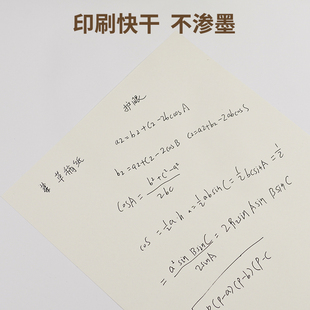 印刷快干 不渗墨
护眼
草稿纸
a2=b2+c2-2bcosA
b2=a2+c2-2cosB c2=a2+b2-2abcosS
cosA=b²+c²-a²/2bc
cos=½a·h=½absinC=½bcsinA=½
=a²sinBsinC/2sinA=2R2sinAsinBsinC
P(P-a)(P-b)(P-C